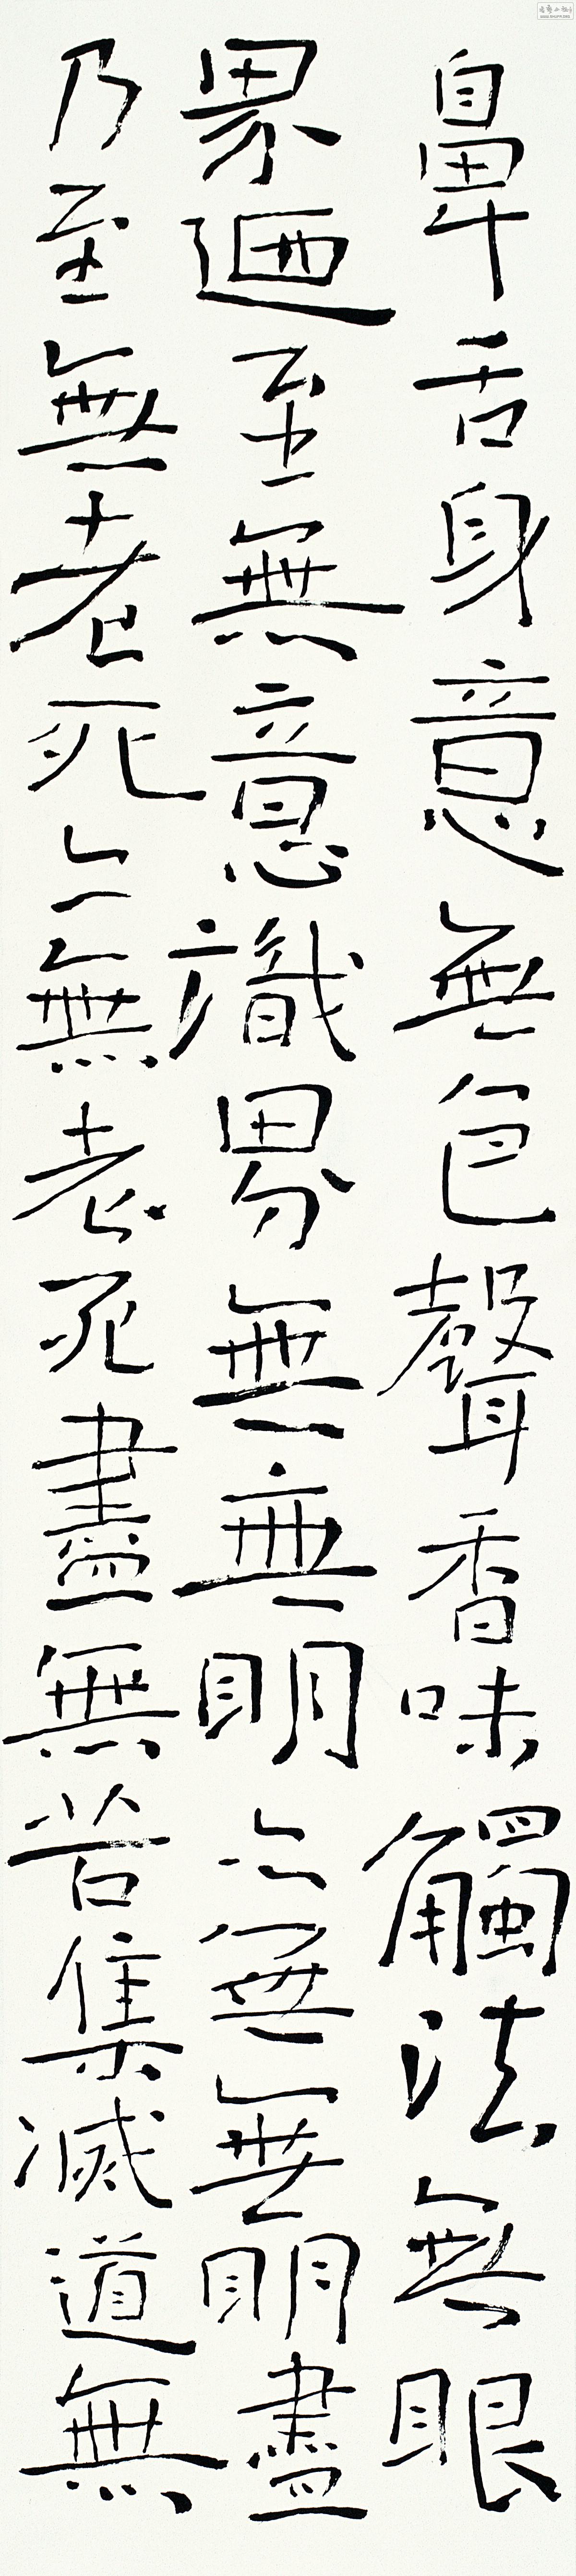 鼻舌身意無色聲香味觸法無眼
界迺至無意識界無無明亦無無明盡
乃至無老死亦無老死盡無苦集滅道無